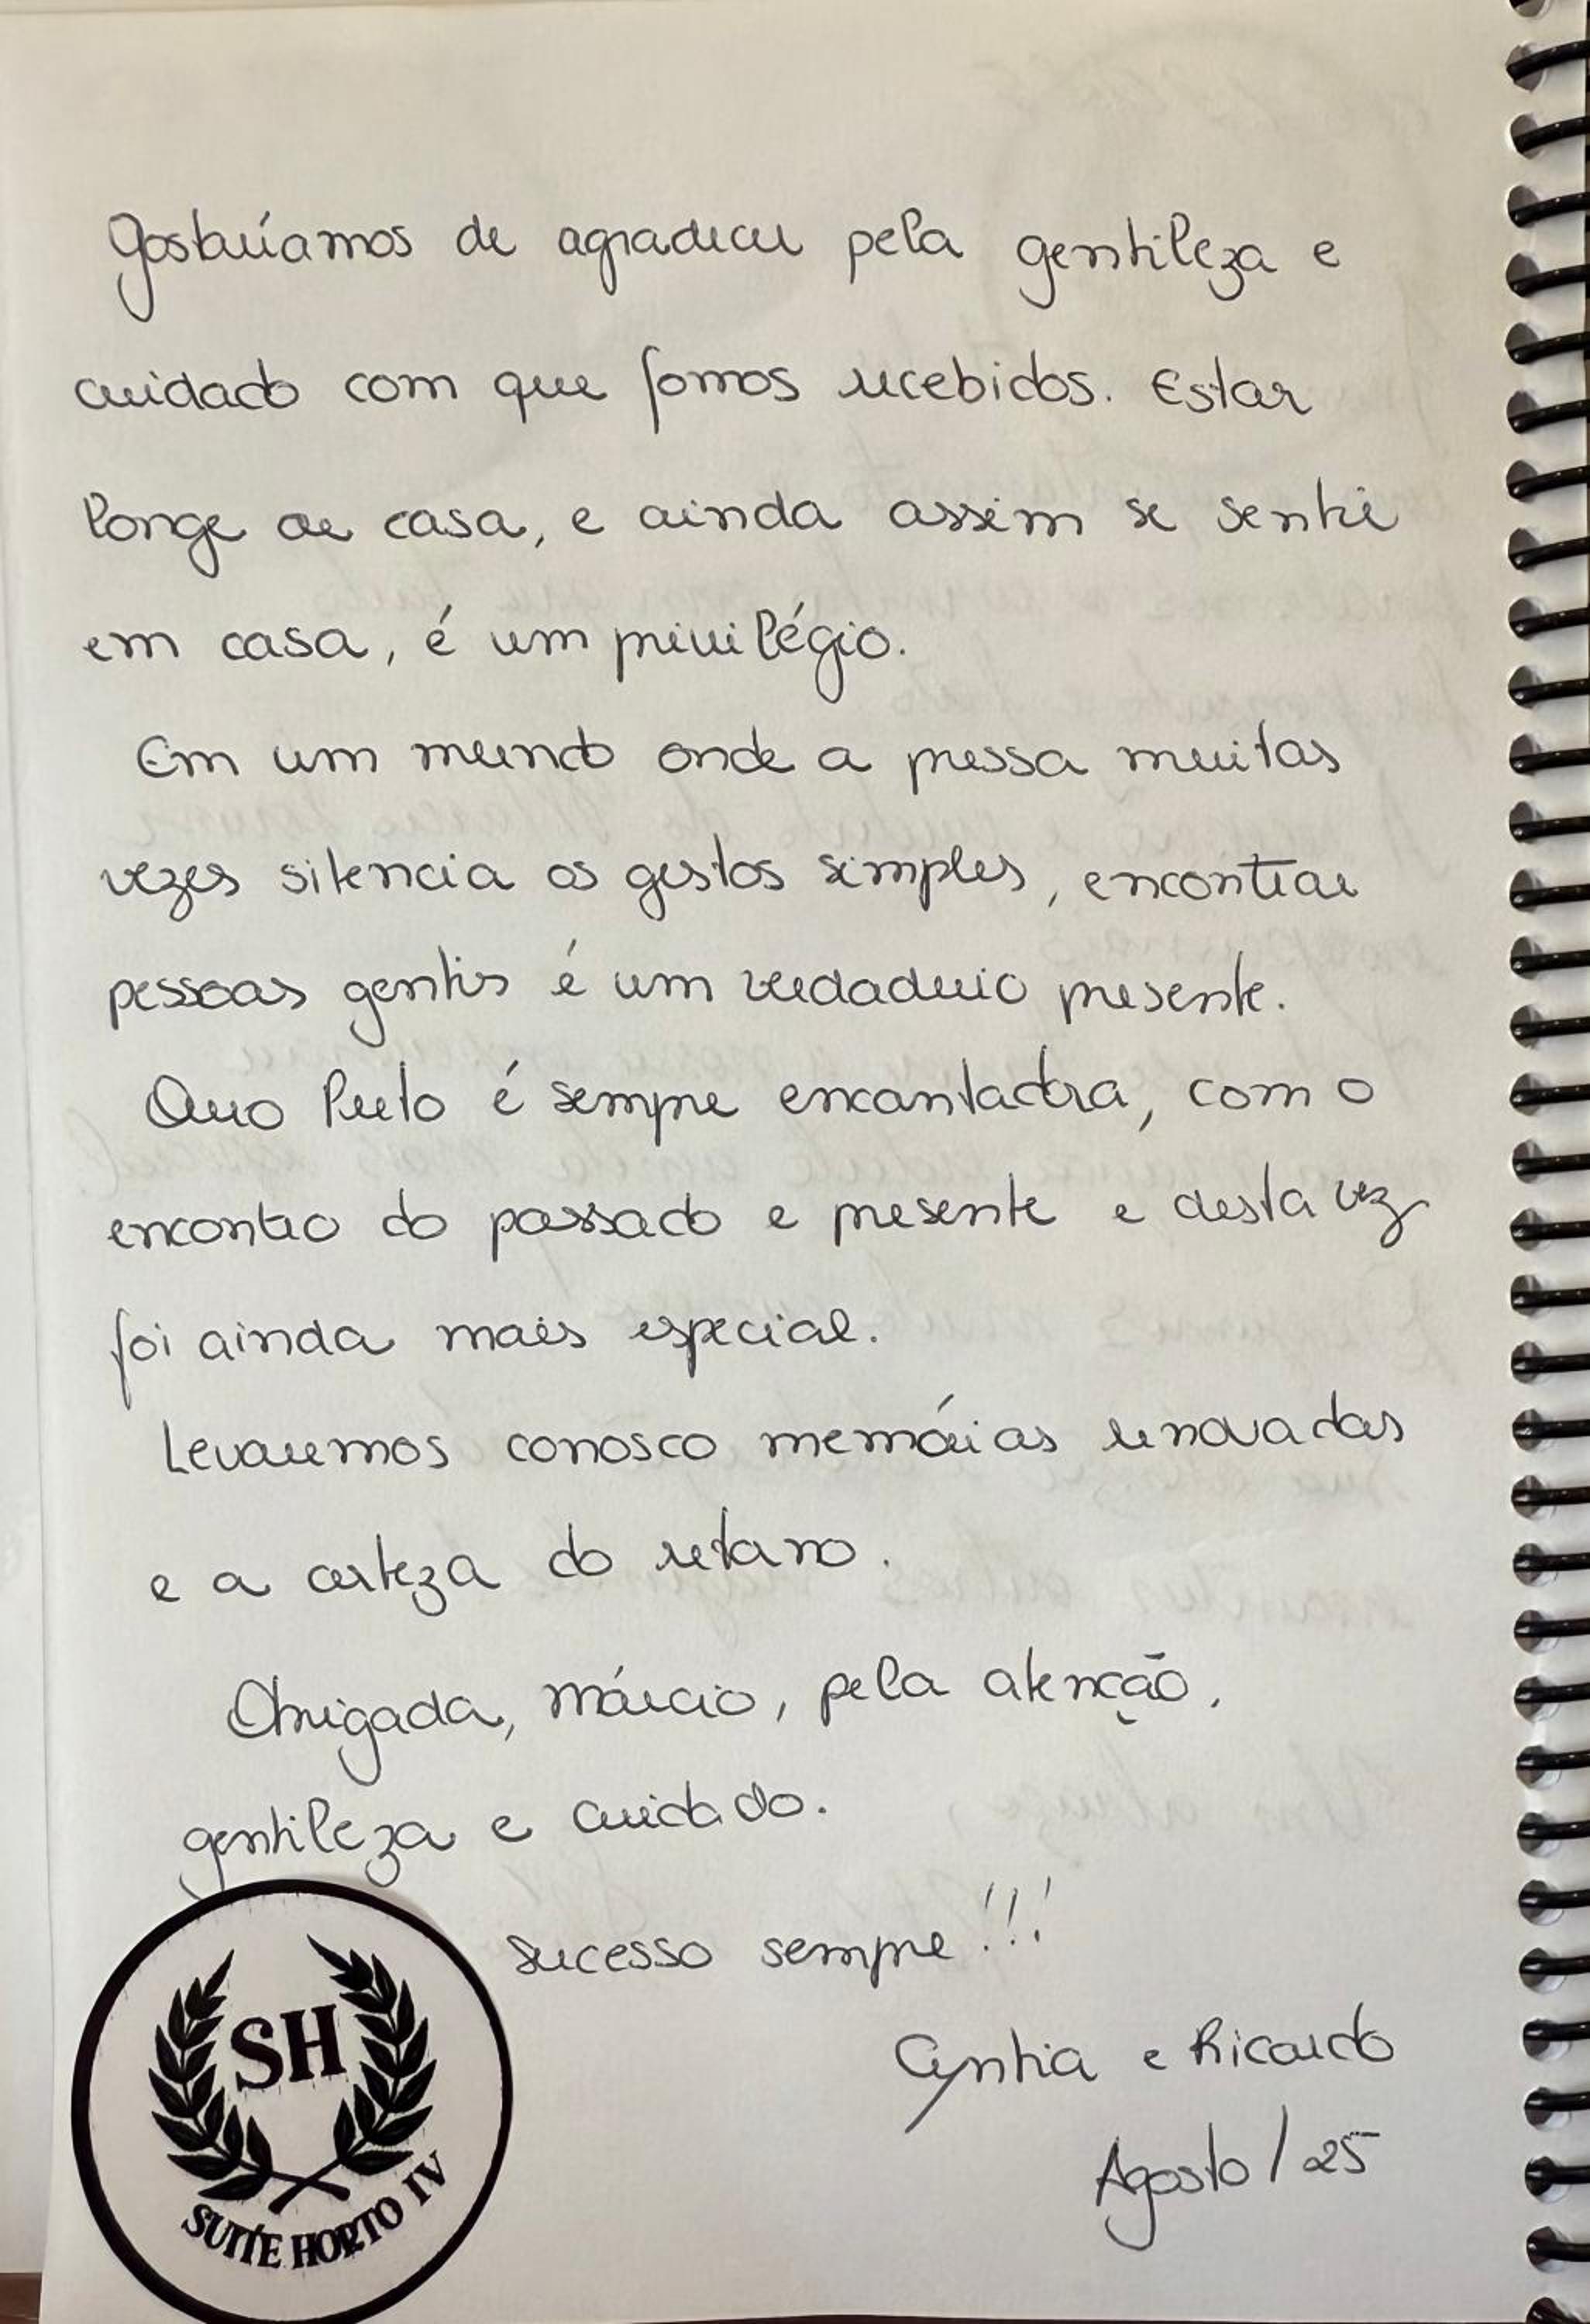 Gostaríamos de agradecer pela gentileza e
cuidado com que fomos recebidos. Estar
longe de casa, e ainda assim se sentir
em casa, é um privilégio.
Em um mundo onde a pressa muitas
vezes silencia os gestos simples, encontrar
pessoas gentis é um verdadeiro presente.
Ouro Preto é sempre encantadora, com o
encontro do passado e presente e desta vez
foi ainda mais especial.
Levaremos conosco memórias renovadas
e a certeza do retorno.
Obrigada, Márcio, pela atenção,
gentileza e cuidado.
Sucesso sempre!!!
Cynthia e Ricardo
Agosto/25
SH
SUITE HORTO IV